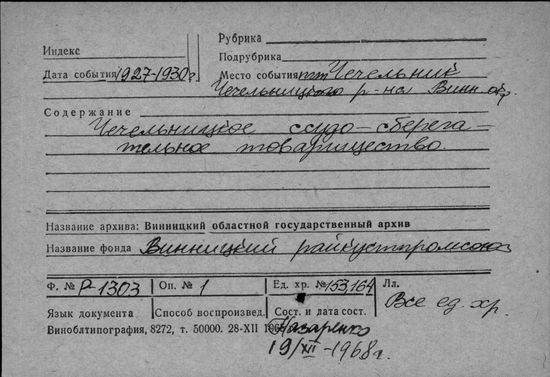 Рубрика
Индекс
Подрубрика
Дата события 1927-1930г
Место события пгт Чечельник
Чечельницкого р-на Винн. обл.
Содержание
Чечельницкое ссудо-сберега-
тельное товарищество.
Название архива: Винницкий областной государственный архив
Название фонда Винницкий райкустпромсоюз
Ф. № Р-1303 Оп. № 1 Ед. хр. № 153,164 Лл.
Все ед. хр.
Язык документа Способ воспроизвед. Сост. и дата сост.
Виноблтипография, 8272, т. 50000. 28-XII
Назаренко
19/XII-1968г.